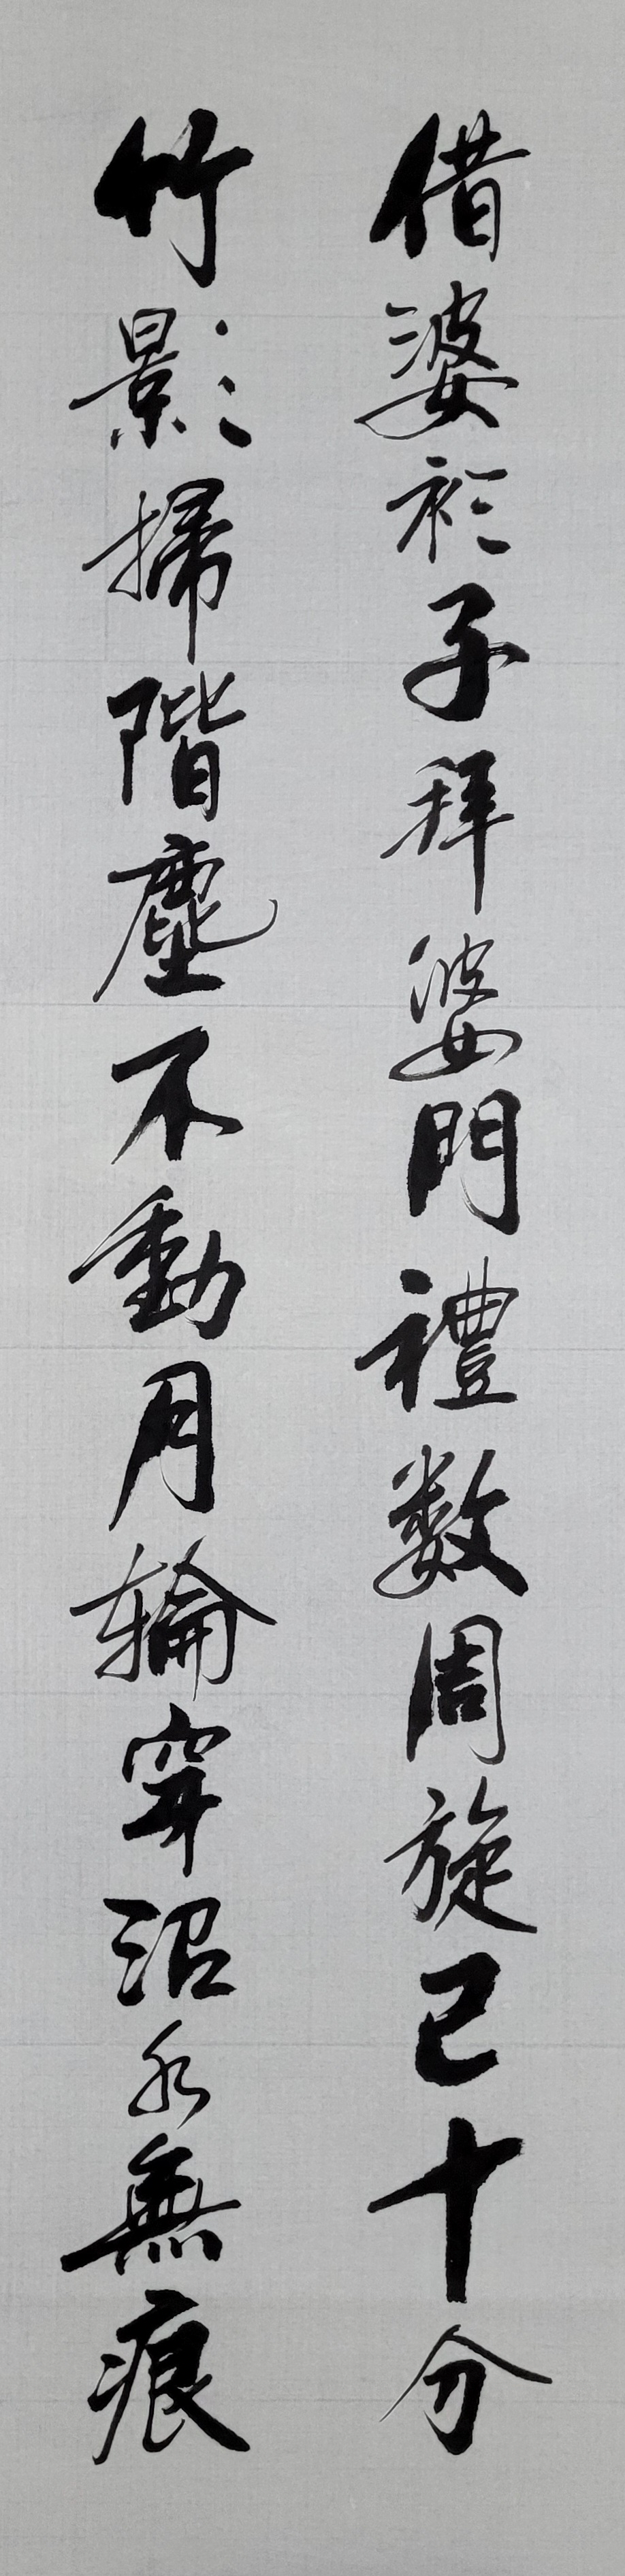 借婆衫子拜婆門禮数周旋已十分
竹影掃階塵不動月輪穿沼水無痕